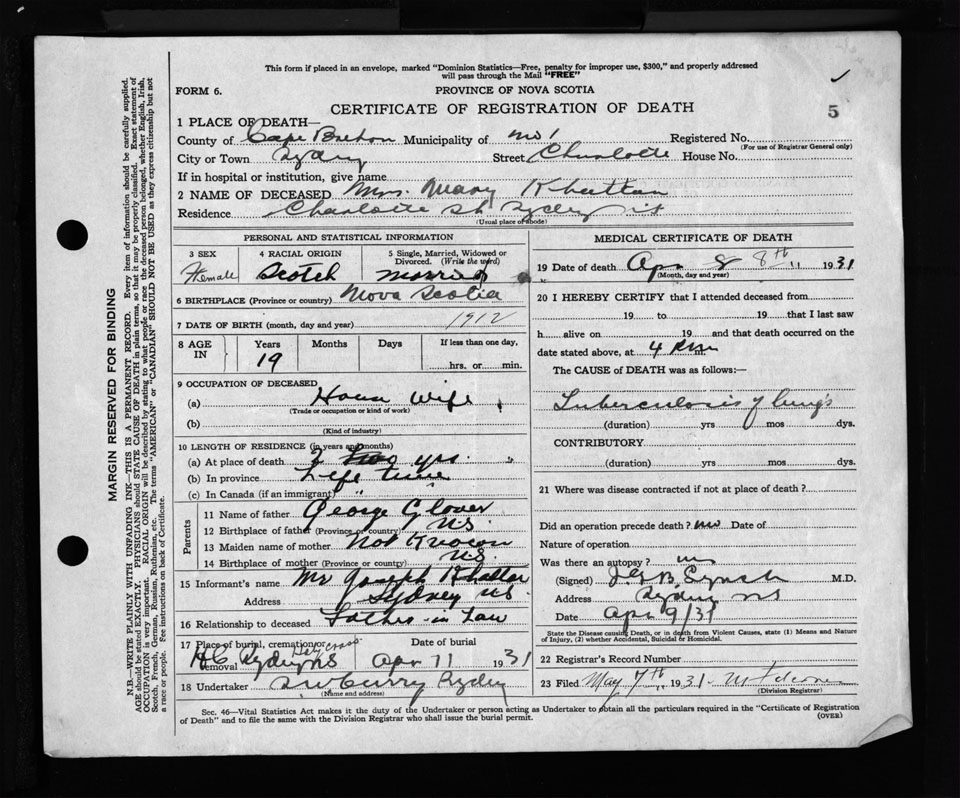 This form if placed in an envelope, marked "Dominion Statistics—Free, penalty for improper use, $300," and properly addressed
will pass through the Mail "FREE"
FORM 6.
PROVINCE OF NOVA SCOTIA
CERTIFICATE OF REGISTRATION OF DEATH
5
1 PLACE OF DEATH—
County of Cape Breton Municipality of No 1 Registered No.
(For use of Registrar General only)
City or Town Sydney Street Charlotte House No.
If in hospital or institution, give name
2 NAME OF DECEASED Mrs. Mary Khattar
Residence Charlotte St Sydney
(Usual place of abode)
MARGIN RESERVED FOR BINDING
N.B.—WRITE PLAINLY WITH UNFADING INK—THIS IS A PERMANENT RECORD. Every item of information should be carefully supplied.
AGE should be stated EXACTLY. PHYSICIANS should STATE CAUSE OF DEATH in plain terms, so that it may be properly classified. Exact statement of
OCCUPATION is very important. RACIAL ORIGIN will be described by stating to what people or race the deceased person belonged, whether English, Irish,
Scotch, French, German, Russian, Ruthenian, etc. The terms "AMERICAN" or "CANADIAN" SHOULD NOT BE USED as they express citizenship but not
a race or people. Fee instructions on back of Certificate.
PERSONAL AND STATISTICAL INFORMATION
3 SEX
Female
4 RACIAL ORIGIN
Scotch
5 Single, Married, Widowed or
Divorced. (Write the word)
Married
6 BIRTHPLACE (Province or country) Nova Scotia
7 DATE OF BIRTH (month, day and year) 1912
8 AGE
IN
Years
19
Months
Days
If less than one day,
hrs. or min.
9 OCCUPATION OF DECEASED
(a) House wife
(Trade or occupation or kind of work)
(b)
(Kind of industry)
10 LENGTH OF RESIDENCE (in years and months)
(a) At place of death 2 two yrs.
(b) In province Life time
(c) In Canada (if an immigrant) "
Parents
11 Name of father George Glover
12 Birthplace of father (Province or country) N.S.
13 Maiden name of mother Not Known
14 Birthplace of mother (Province or country) N.S.
15 Informant's name Mr Joseph Khattar
Address Sydney NS
16 Relationship to deceased Father-in Law
17 Place of burial, cremation or
removal
Holy Cross
Sydney NS
Date of burial
Apr 11 1931
18 Undertaker Curry Sydney
(Name and address)
MEDICAL CERTIFICATE OF DEATH
19 Date of death Apr 8 8th 1931
(Month, day and year)
20 I HEREBY CERTIFY that I attended deceased from
19 to 19 that I last saw
h alive on 19 and that death occurred on the
date stated above, at 4 P.m.
The CAUSE of DEATH was as follows:—
Tuberculosis of lungs
(duration) yrs mos dys.
CONTRIBUTORY
(duration) yrs mos dys.
21 Where was disease contracted if not at place of death ?
Did an operation precede death ? no Date of
Nature of operation
Was there an autopsy ? no
(Signed) B. Lynch M.D.
Address Sydney NS
Date Apr 9/31
State the Disease causing Death, or in death from Violent Causes, state (1) Means and Nature
of Injury, (2) whether Accidental, Suicidal or Homicidal.
22 Registrar's Record Number
23 Filed May 7th 1931
(Division Registrar)
Sec. 46—Vital Statistics Act makes it the duty of the Undertaker or person acting as Undertaker to obtain all the particulars required in the "Certificate of Registration
of Death" and to file the same with the Division Registrar who shall issue the burial permit.
(OVER)